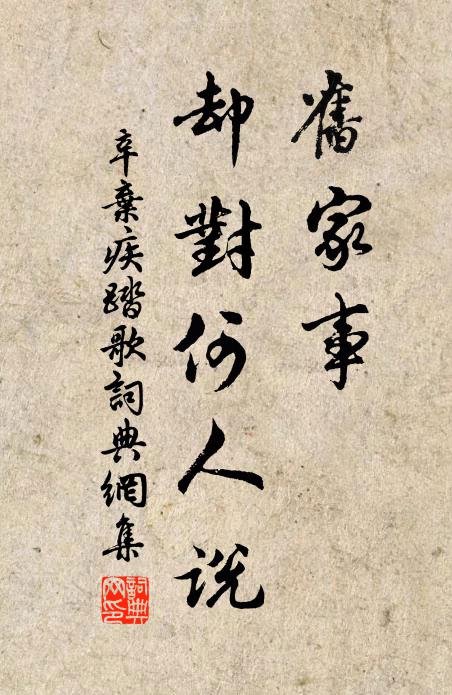 舊家事
却對何人說
辛棄疾踏歌詞典網集
詞典网印